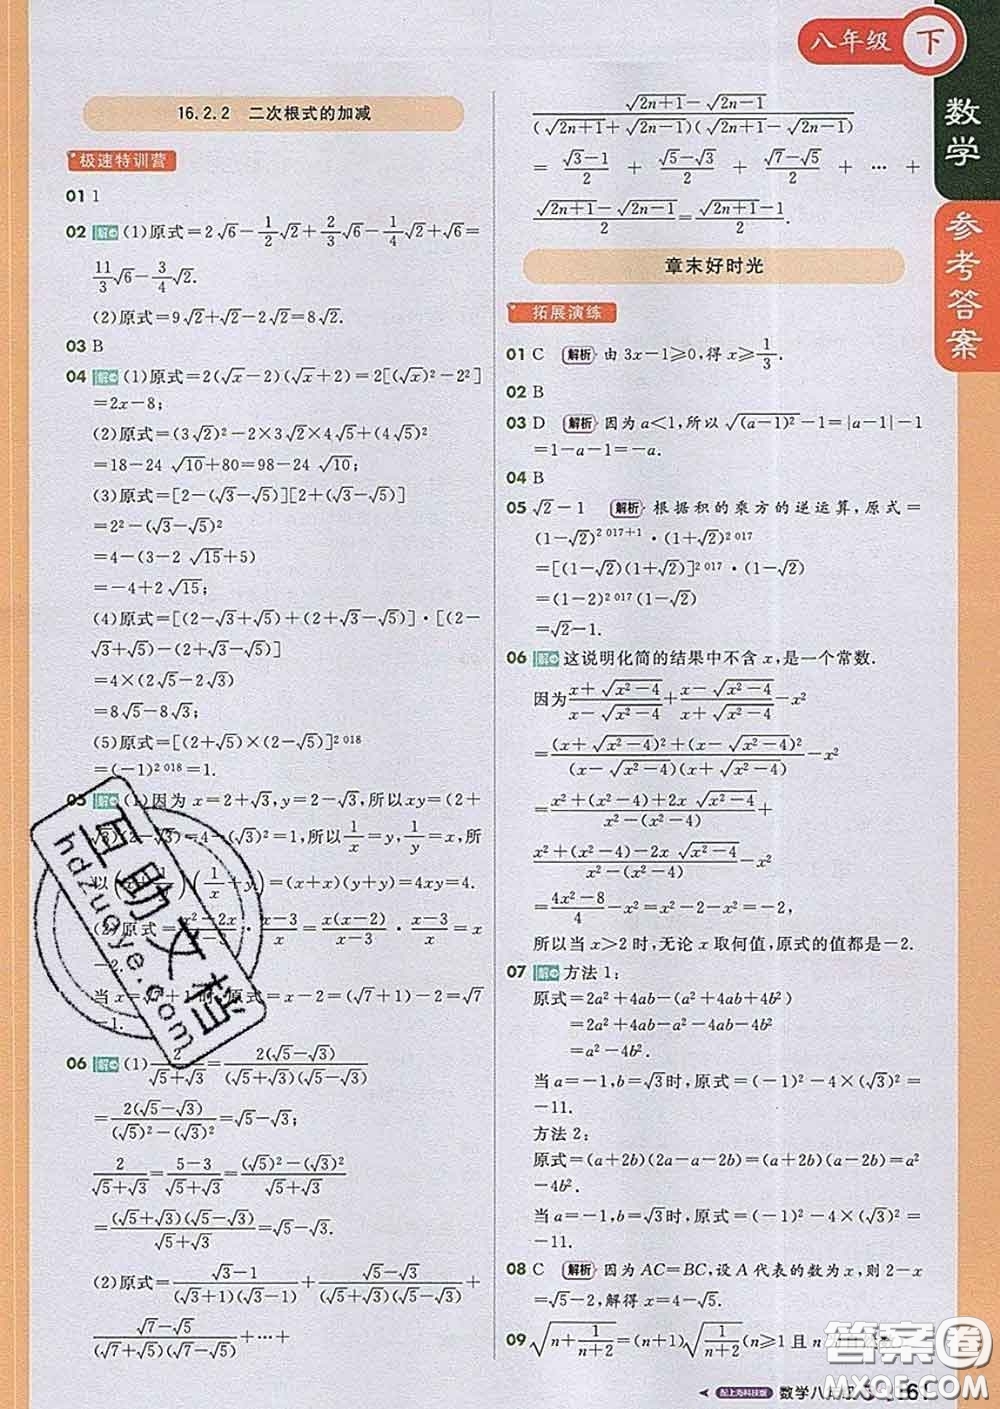 八年级 下
数学
参考答案
16.2.2 二次根式的加减
极速特训营
01 1
02 解 (1)原式=2√6-1/2√2+2/3√6-1/4√2+√6=
11/3√6-3/4√2.
(2)原式=9√2+√2-2√2=8√2.
03 B
04 解 (1)原式=2(√x-2)(√x+2)=2[(√x)²-2²]
=2x-8;
(2)原式=(3√2)²-2×3√2×4√5+(4√5)²
=18-24√10+80=98-24√10;
(3)原式=[2-(√3-√5)][2+(√3-√5)]
=2²-(√3-√5)²
=4-(3-2√15+5)
=-4+2√15;
(4)原式=[(2-√3+√5)+(2+√3-√5)]·[(2-
√3+√5)-(2+√3-√5)]
=4×(2√5-2√3)
=8√5-8√3;
(5)原式=[(2+√5)×(2-√5)]²⁰¹⁸
=(-1)²⁰¹⁸=1.
05 解 (1)因为x=2+√3,y=2-√3,所以xy=(2+
√3)(2-√3)=4-(√3)²=1,所以1/x=y,1/y=x,所
以 (1/x+y)=(x+x)(y+y)=4xy=4.
(2)原式=(x²-2x)/(x-3)·(x-3)/x=x(x-2)/(x-3)·(x-3)/x=x
-2.
当x=√7+1时,原式=x-2=(√7+1)-2=√7
-1.
06 解 (1)2/(√5+√3)=2(√5-√3)/((√5+√3)(√5-√3))
=2(√5-√3)/((√5)²-(√3)²)=√5-√3;
2/(√5+√3)=(5-3)/(√5+√3)=((√5)²-(√3)²)/(√5+√3)
=(√5+√3)(√5-√3)/(√5+√3)=√5-√3.
(2)原式=(√3-1)/((√3+1)(√3-1))+(√5-√3)/((√5+√3)(√5-√3))+
(√7-√5)/((√7+√5)(√7-√5))+…+
(√(2n+1)-√(2n-1))/((√(2n+1)+√(2n-1))(√(2n+1)-√(2n-1)))
=(√3-1)/2+(√5-√3)/2+(√7-√5)/2+…+
(√(2n+1)-√(2n-1))/2=(√(2n+1)-1)/2.
章末好时光
拓展演练
01 C 解析 由3x-1≥0,得x≥1/3.
02 B
03 D 解析 因为a<1,所以√((a-1)²)-1=|a-1|-1
=1-a-1=-a.
04 B
05 √2-1 解析 根据积的乘方的逆运算,原式=
(1-√2)²⁰¹⁷⁺¹·(1+√2)²⁰¹⁷
=[(1-√2)(1+√2)]²⁰¹⁷·(1-√2)
=(1-2)²⁰¹⁷(1-√2)
=√2-1.
06 解 这说明化简的结果中不含x,是一个常数.
因为(x+√(x²-4))/(x-√(x²-4))+(x-√(x²-4))/(x+√(x²-4))-x²
=((x+√(x²-4))²+(x-√(x²-4))²)/((x-√(x²-4))(x+√(x²-4)))-x²
=(x²+(x²-4)+2x√(x²-4))/(x²-(x²-4))+
(x²+(x²-4)-2x√(x²-4))/(x²-(x²-4))-x²
=(4x²-8)/4-x²=x²-2-x²=-2,
所以当x>2时,无论x取何值,原式的值都是-2.
07 解 方法1:
原式=2a²+4ab-(a²+4ab+4b²)
=2a²+4ab-a²-4ab-4b²
=a²-4b².
当a=-1,b=√3时,原式=(-1)²-4×(√3)²=
-11.
方法2:
原式=(a+2b)(2a-a-2b)=(a+2b)(a-2b)=a²
-4b².
当a=-1,b=√3时,原式=(-1)²-4×(√3)²=
-11.
08 C 解析 因为AC=BC,设A代表的数为x,则2-x
=√5-2,解得x=4-√5.
09 √(n+1/(n+2))=(n+1)√(1/(n+2))(n≥1且n
配上海科技版 数学八年级 61
互助文档
hdzuoye.com
答案圈
MXQE.COM